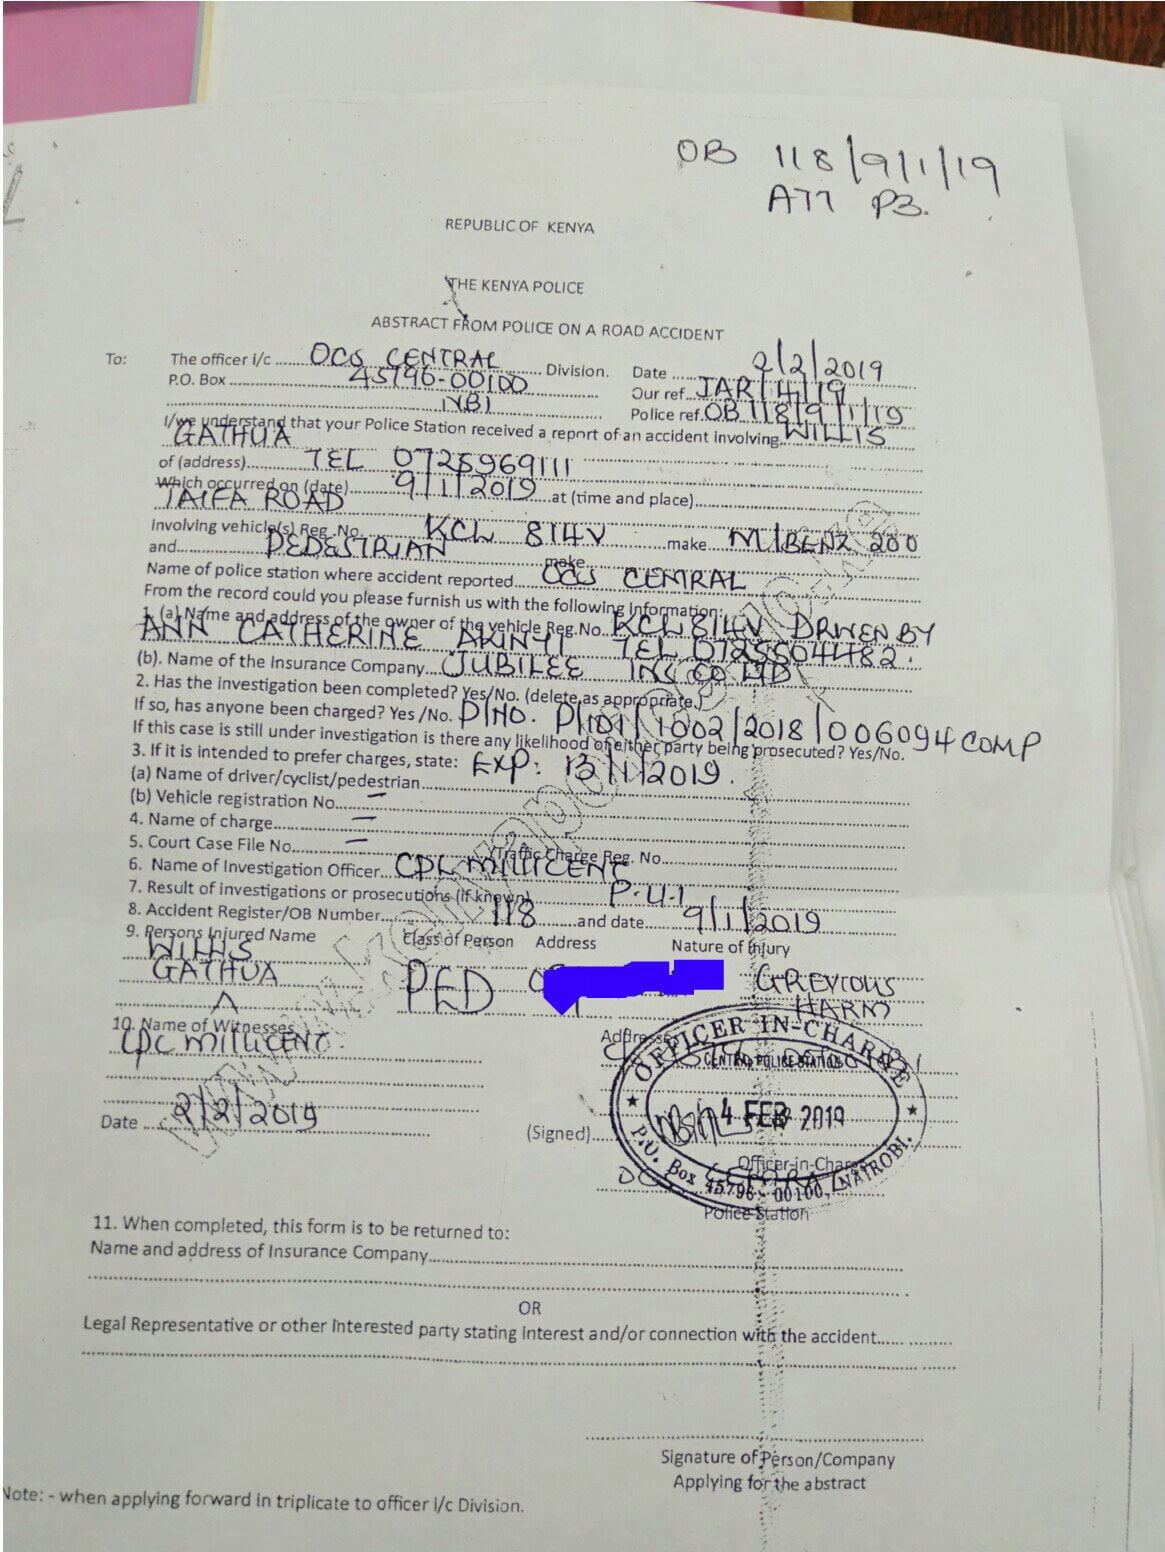 OB 118/9/1/19
ATT P3.
REPUBLIC OF KENYA
THE KENYA POLICE
ABSTRACT FROM POLICE ON A ROAD ACCIDENT
To: The officer i/c OCS CENTRAL Division. Date 2/2/2019
P.O. Box 45796-00100 Our ref JAR/4/19
NBI Police ref. OB 118/9/1/19
I/we understand that your Police Station received a report of an accident involving WILLIS
GATHUA
of (address) TEL 0725969111
Which occurred on (date) 9/1/2019 at (time and place)
TAIFA ROAD
Involving vehicle(s) Reg. No KCL 814V make M/BENZ 200
and PEDESTRIAN make
Name of police station where accident reported OCS CENTRAL
From the record could you please furnish us with the following information:
1. (a) Name and address of the owner of the vehicle Reg.No. KCL 814V DRIVEN BY
ANN CATHERINE AKINYI TEL 0725504482.
(b). Name of the Insurance Company JUBILEE INS CO LTD
2. Has the investigation been completed? Yes/No. (delete as appropriate.)
If so, has anyone been charged? Yes /No. P/NO. P/101/1002/2018/006094 COMP
If this case is still under investigation is there any likelihood of either party being prosecuted? Yes/No.
3. If it is intended to prefer charges, state: EXP: 13/1/2019.
(a) Name of driver/cyclist/pedestrian
(b) Vehicle registration No. –
4. Name of charge =
5. Court Case File No. – Traffic Charge Reg. No.
6. Name of Investigation Officer CPL MILLICENT
7. Result of investigations or prosecutions (if known) P.U.I
8. Accident Register/OB Number 118 and date 9/1/2019
9. Persons Injured Name Class of Person Address Nature of Injury
WILLIS
GATHUA PED GREVIOUS
HARM
10. Name of Witnesses Address
CPL MILLICENT.
OFFICER IN-CHARGE
CENTRAL POLICE STATION
4 FEB 2019
P.O. Box 45796 - 00100, NAIROBI.
Date 2/2/2019
(Signed)
Officer-in-Charge
Police Station
11. When completed, this form is to be returned to:
Name and address of Insurance Company
OR
Legal Representative or other Interested party stating Interest and/or connection with the accident
Signature of Person/Company
Applying for the abstract
Note: - when applying forward in triplicate to officer i/c Division.